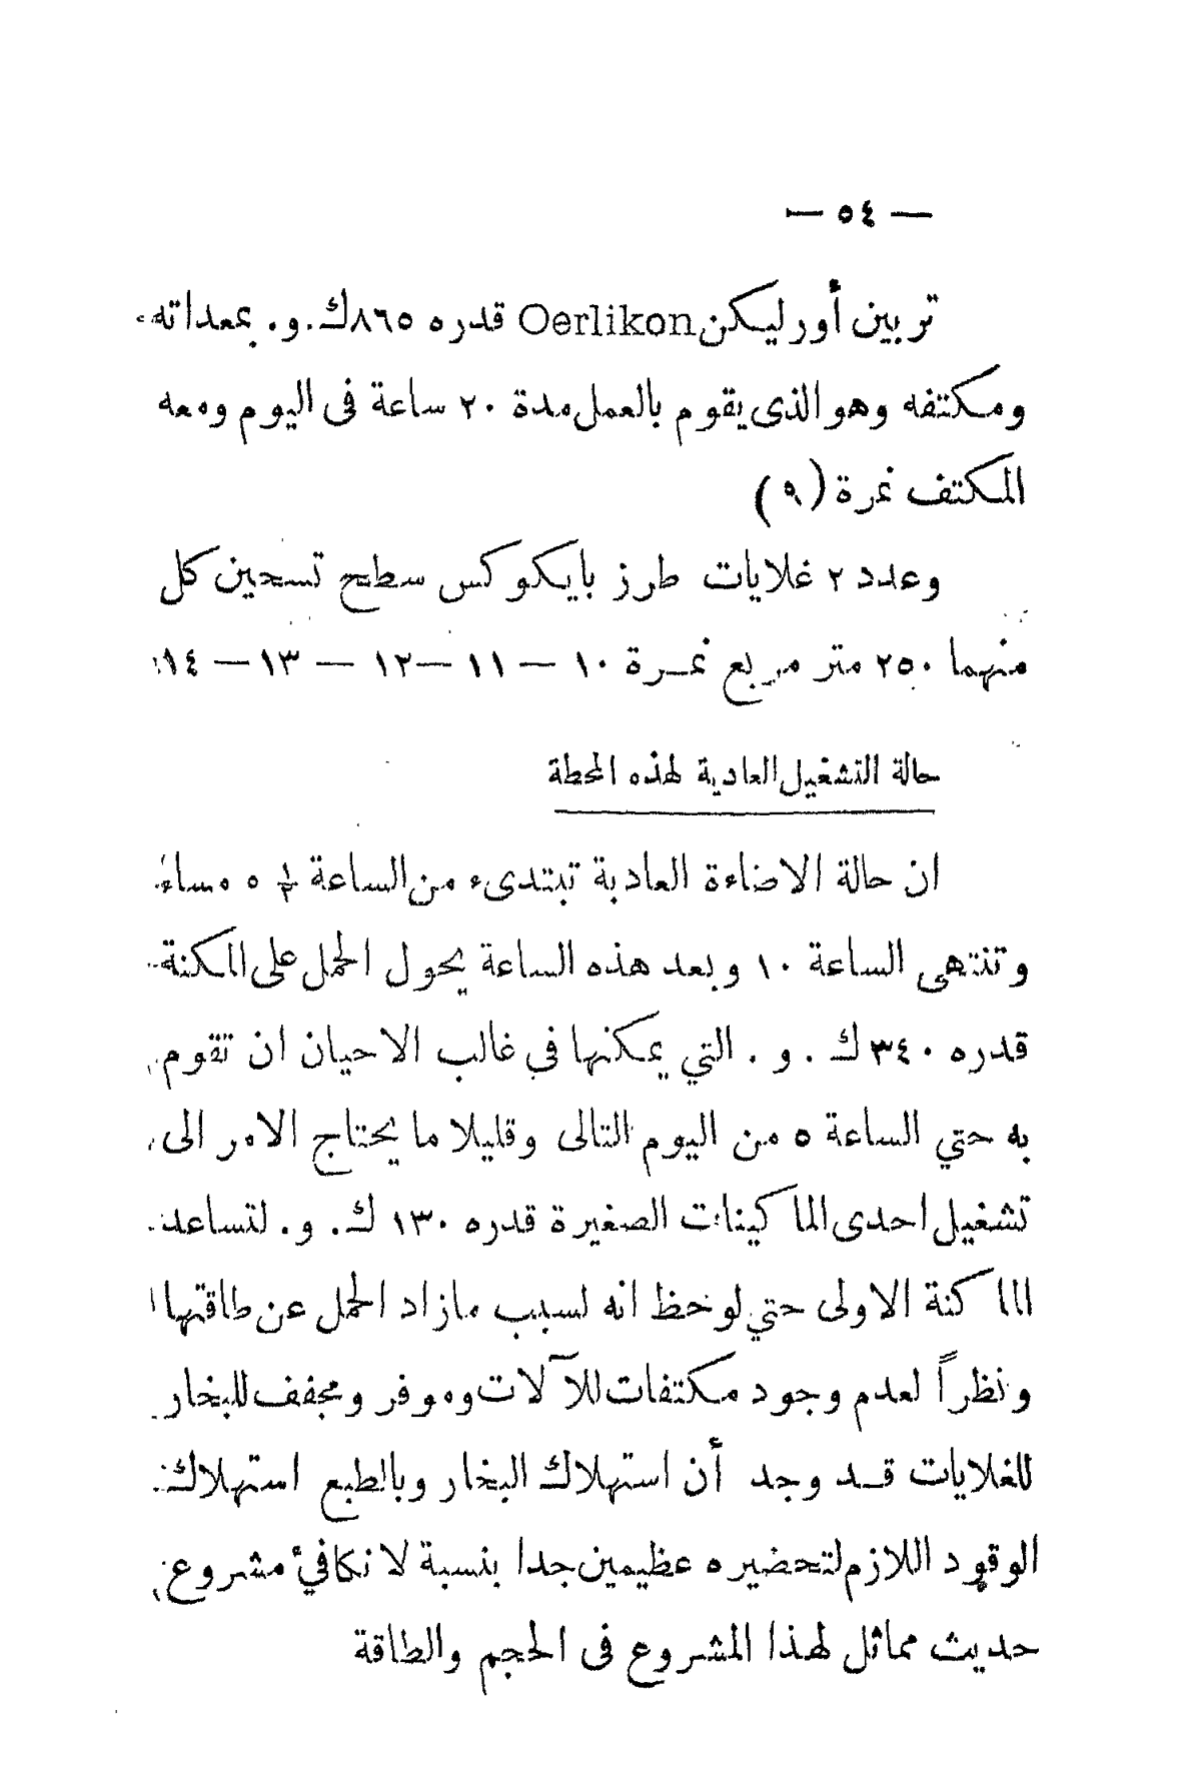 — ٥٤ —
تربين أورليكن Oerlikon قدره ٨٦٥ ك.و. بمعداته
ومكتفه وهو الذى يقوم بالعمل مدة ٢٠ ساعة فى اليوم ومعه
المكتف نمرة (٩)
وعدد ٢ غلايات طرز بايكوكس سطح تسحين كل
منهما ٢٥٠ متر مربع نمرة ١٠ — ١١ — ١٢ — ١٣ — ١٤
حالة التشغيل العادية لهذه المحطة
ان حالة الاضاءة العادية تبتدىء من الساعة ½ ٥ مساء
وتنتهى الساعة ١٠ وبعد هذه الساعة يحول الحمل على المكنة
قدره ٣٤٠ ك . و . التي يمكنها في غالب الاحيان ان تقوم
به حتي الساعة ٥ من اليوم التالى وقليلا ما يحتاج الامر الى
تشغيل احدى الماكينات الصغيرة قدره ١٣٠ ك. و. لتساعد
الماكنة الاولى حتي لوحظ انه لسبب مازاد الحمل عن طاقتها
ونظراً لعدم وجود مكتفات للآلات وموفر ومجفف للبخار
للغلايات قد وجد أن استهلاك البخار وبالطبع استهلاك
الوقود اللازم لتحضيره عظيمين جدا بنسبة لا نكافئ مشروع
حديث مماثل لهذا المشروع فى الحجم والطاقة